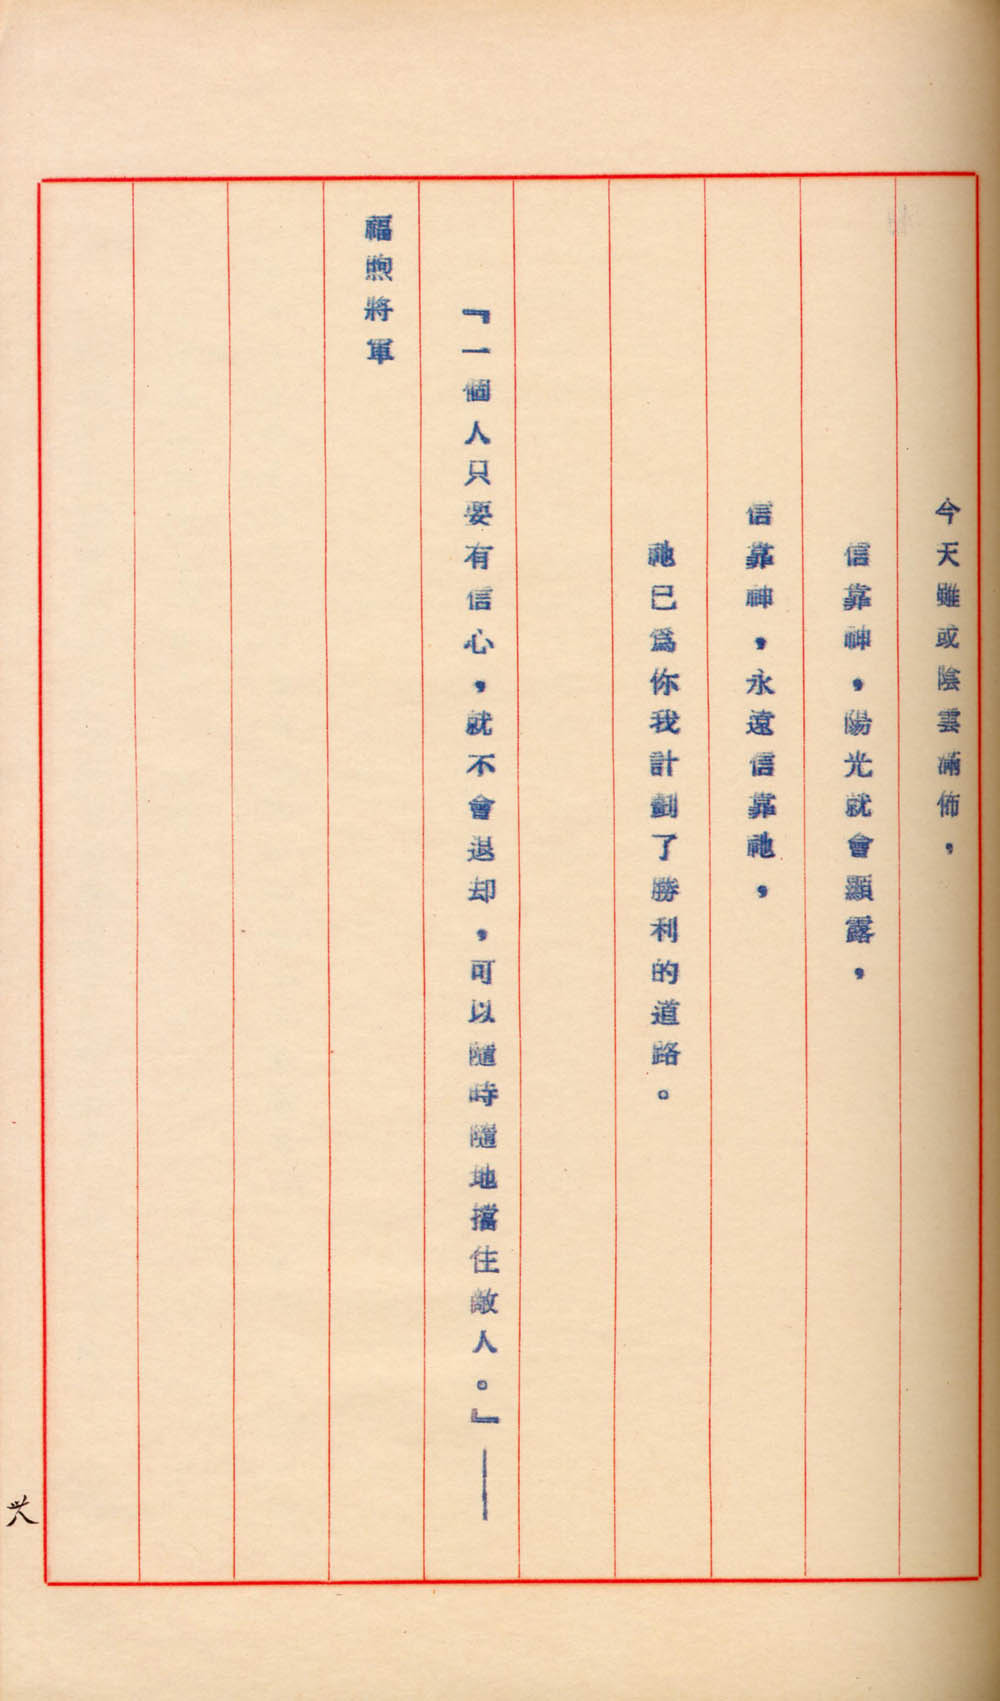 今天雖或陰雲滿佈，
信靠神，陽光就會顯露，
信靠神，永遠信靠祂，
祂已為你我計劃了勝利的道路。
『一個人只要有信心，就不會退却，可以隨時隨地擋住敵人。』——
福煦將軍
卅八